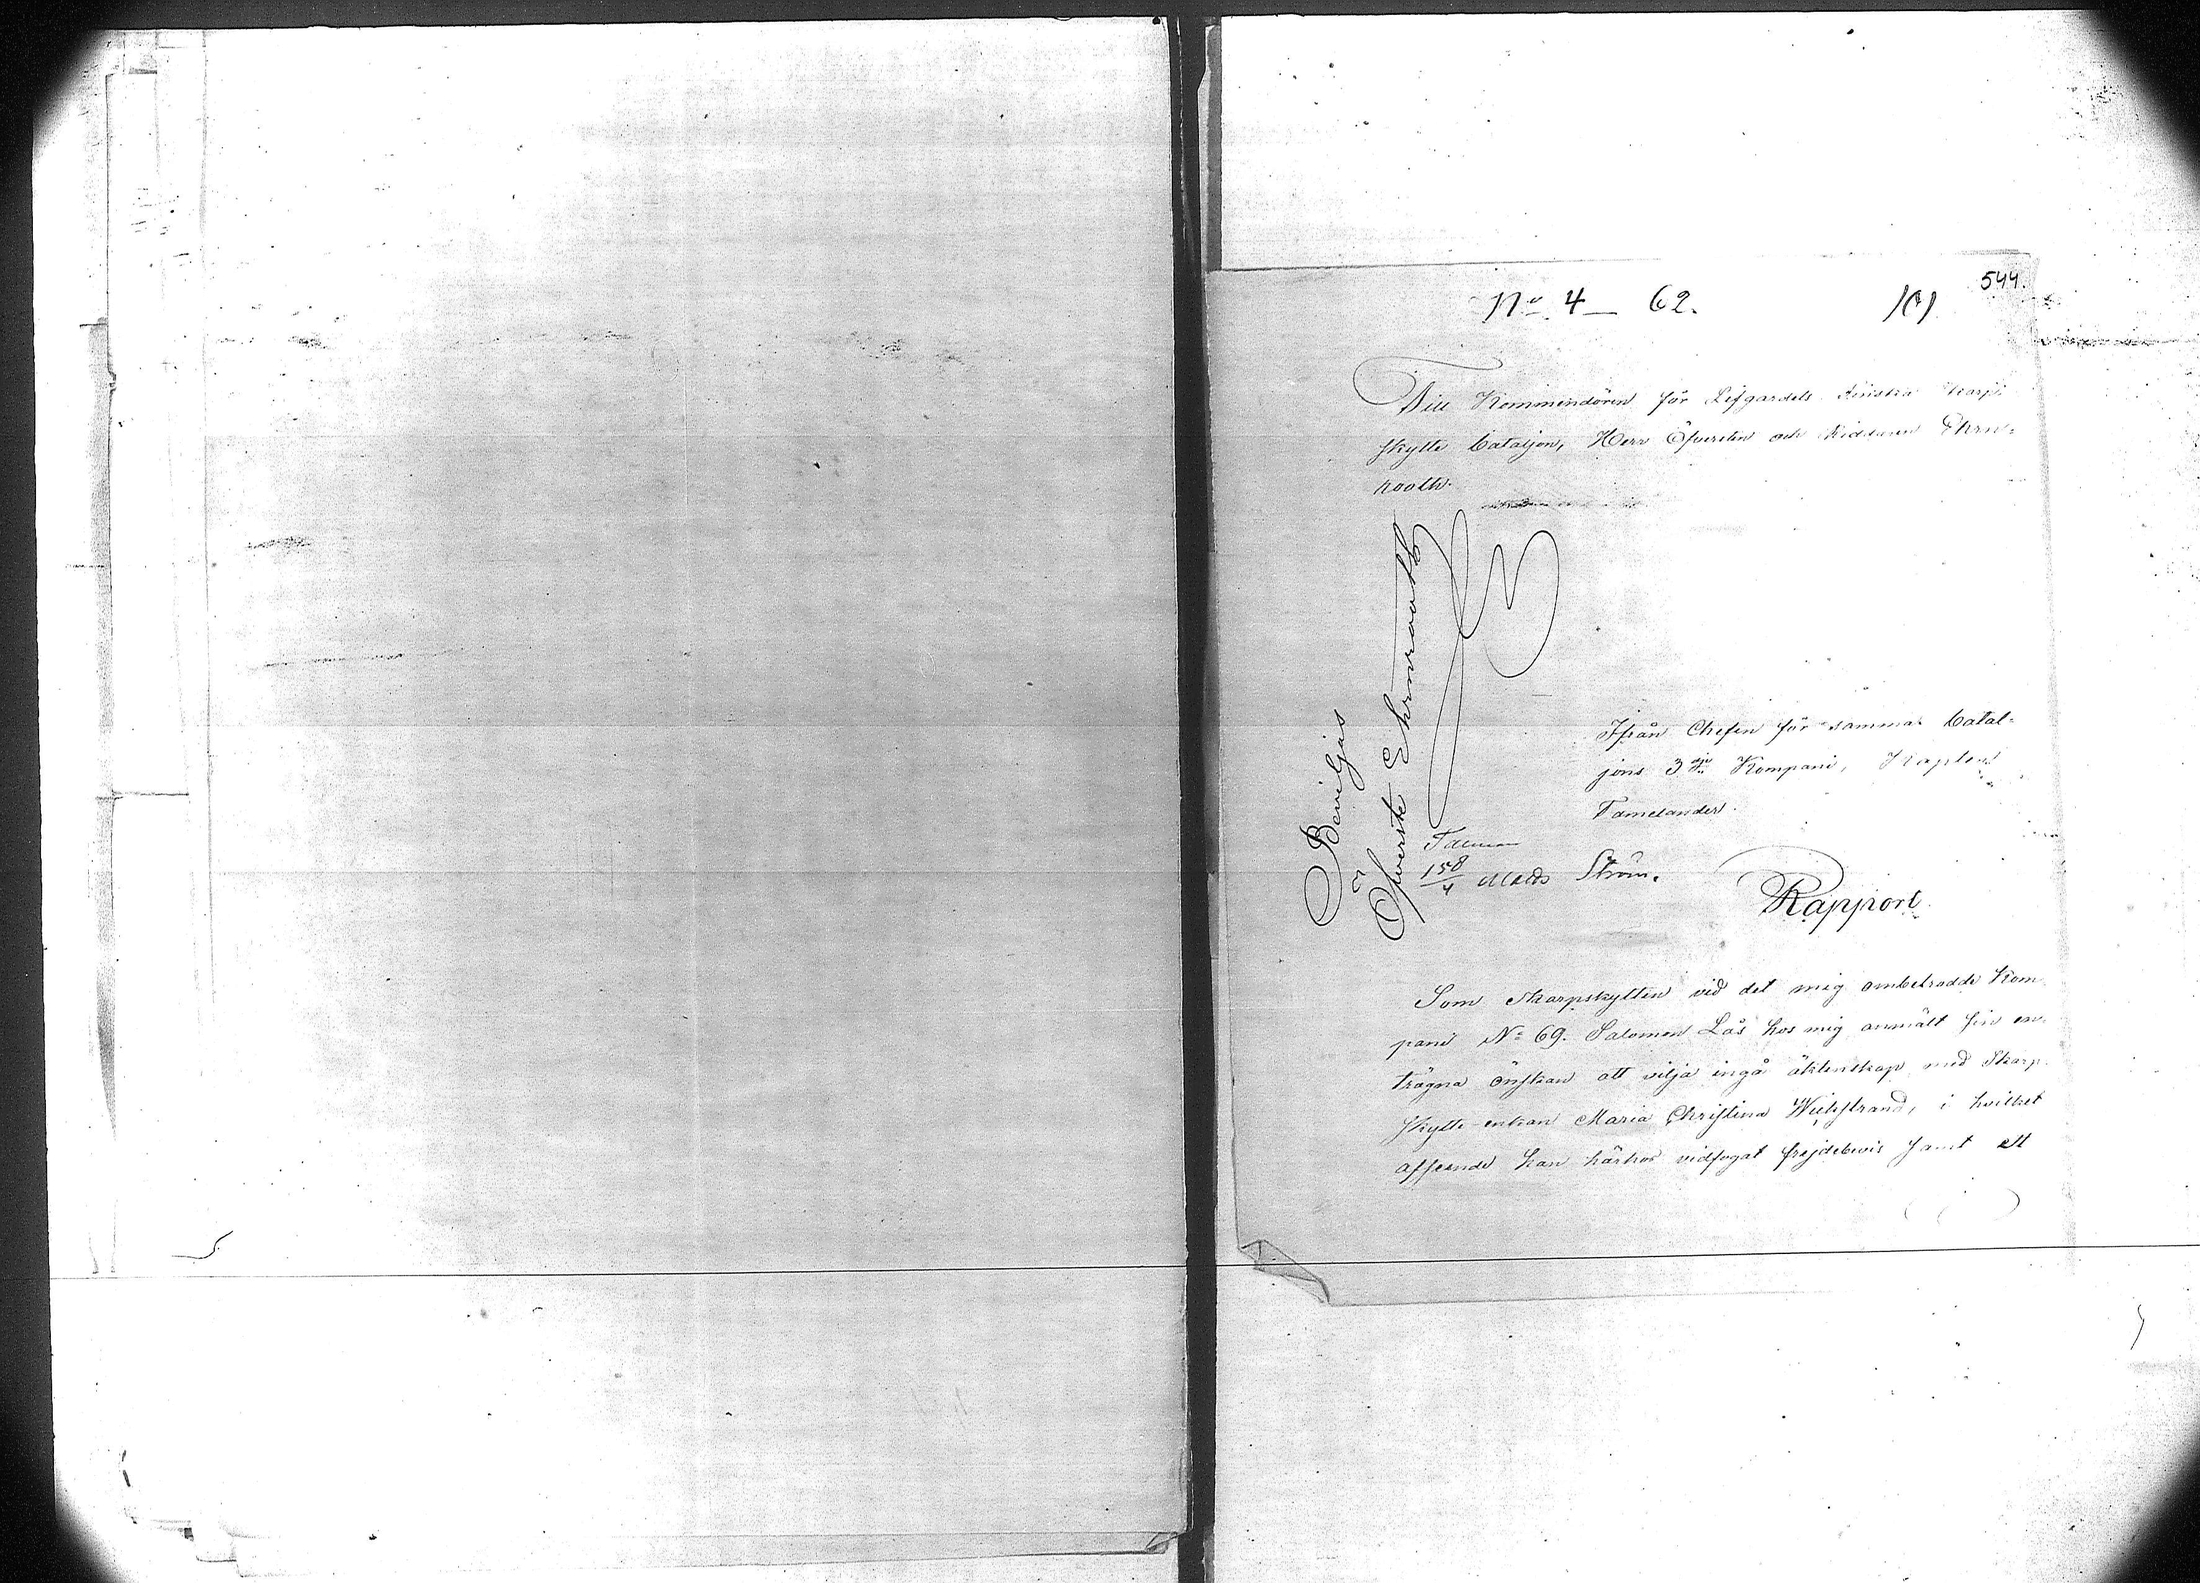 544.
No 4 62.
Till Kommendören för Lifgardets Finska Skarp-
skytte bataljon, Herr Öfversten och Riddaren Ehrn-
rooth.
Beviljas
Öfverste Ehrnrooth
Ifrån Chefen för samma batal-
jons 3dje Kompani, Kapten
Tamelander.
158/4 Ström.
Rapport
Som skarpskytten vid det mig ombetrodde Kom
pani No 69. Salomon Lås hos mig anmält sin en-
trägna önskan att vilja ingå äktenskap med Skarp-
skytte-enkan Maria Christina Wickstrand, i hvilket
afseende han härhos vidfogat frejdebevis samt ett